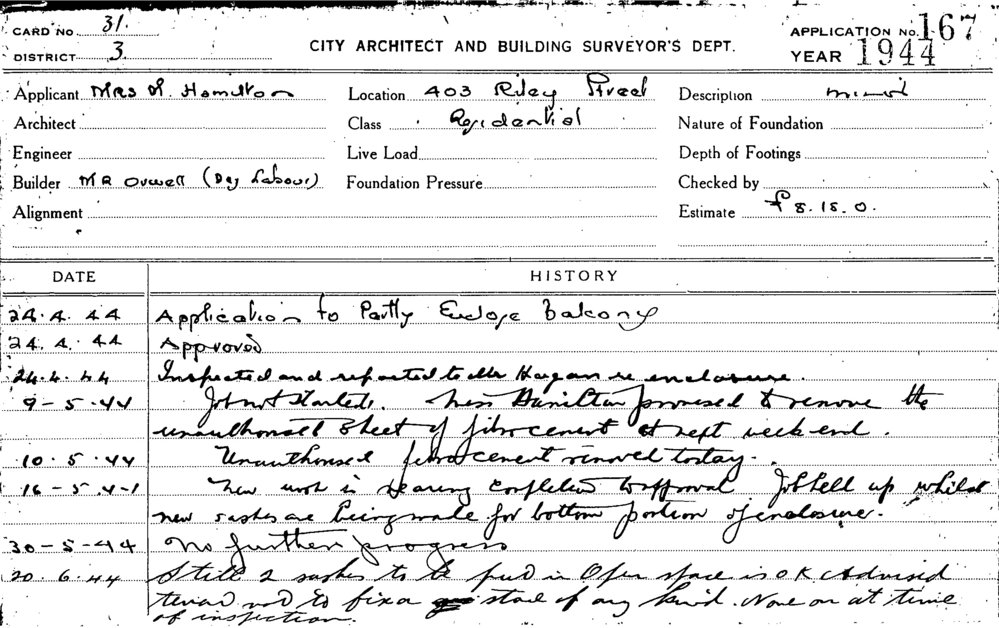 CARD NO 31.
DISTRICT 3.
CITY ARCHITECT AND BUILDING SURVEYOR'S DEPT.
APPLICATION NO. 167
YEAR 1944
Applicant Mrs Hamilton
Location 403 Riley Street
Description minor
Architect
Class Residential
Nature of Foundation
Engineer
Live Load
Depth of Footings
Builder MR Orwell (Day Labour)
Foundation Pressure
Checked by
Alignment
Estimate £8.15.0.
DATE HISTORY
24.4.44 Application to Partly Enclose Balcony
24.4.44 Approved
24.4.44 Inspected and reported to Mr Hogan re enclosure.
9-5-44 Job not started. Miss Hamilton promised to remove the
unauthorised sheet of fibrocement at next week end.
10.5.44 Unauthorised fibrocement removed today.
16-5-41 New work is nearing completion to approval Job held up whilst
new sashes are being made for bottom portion of enclosure.
30-5-44 No further progress
20.6.44 Still 2 sashes to be put in Open space is OK Advised
tenant not to fix a stove of any kind. None on at time
of inspection.